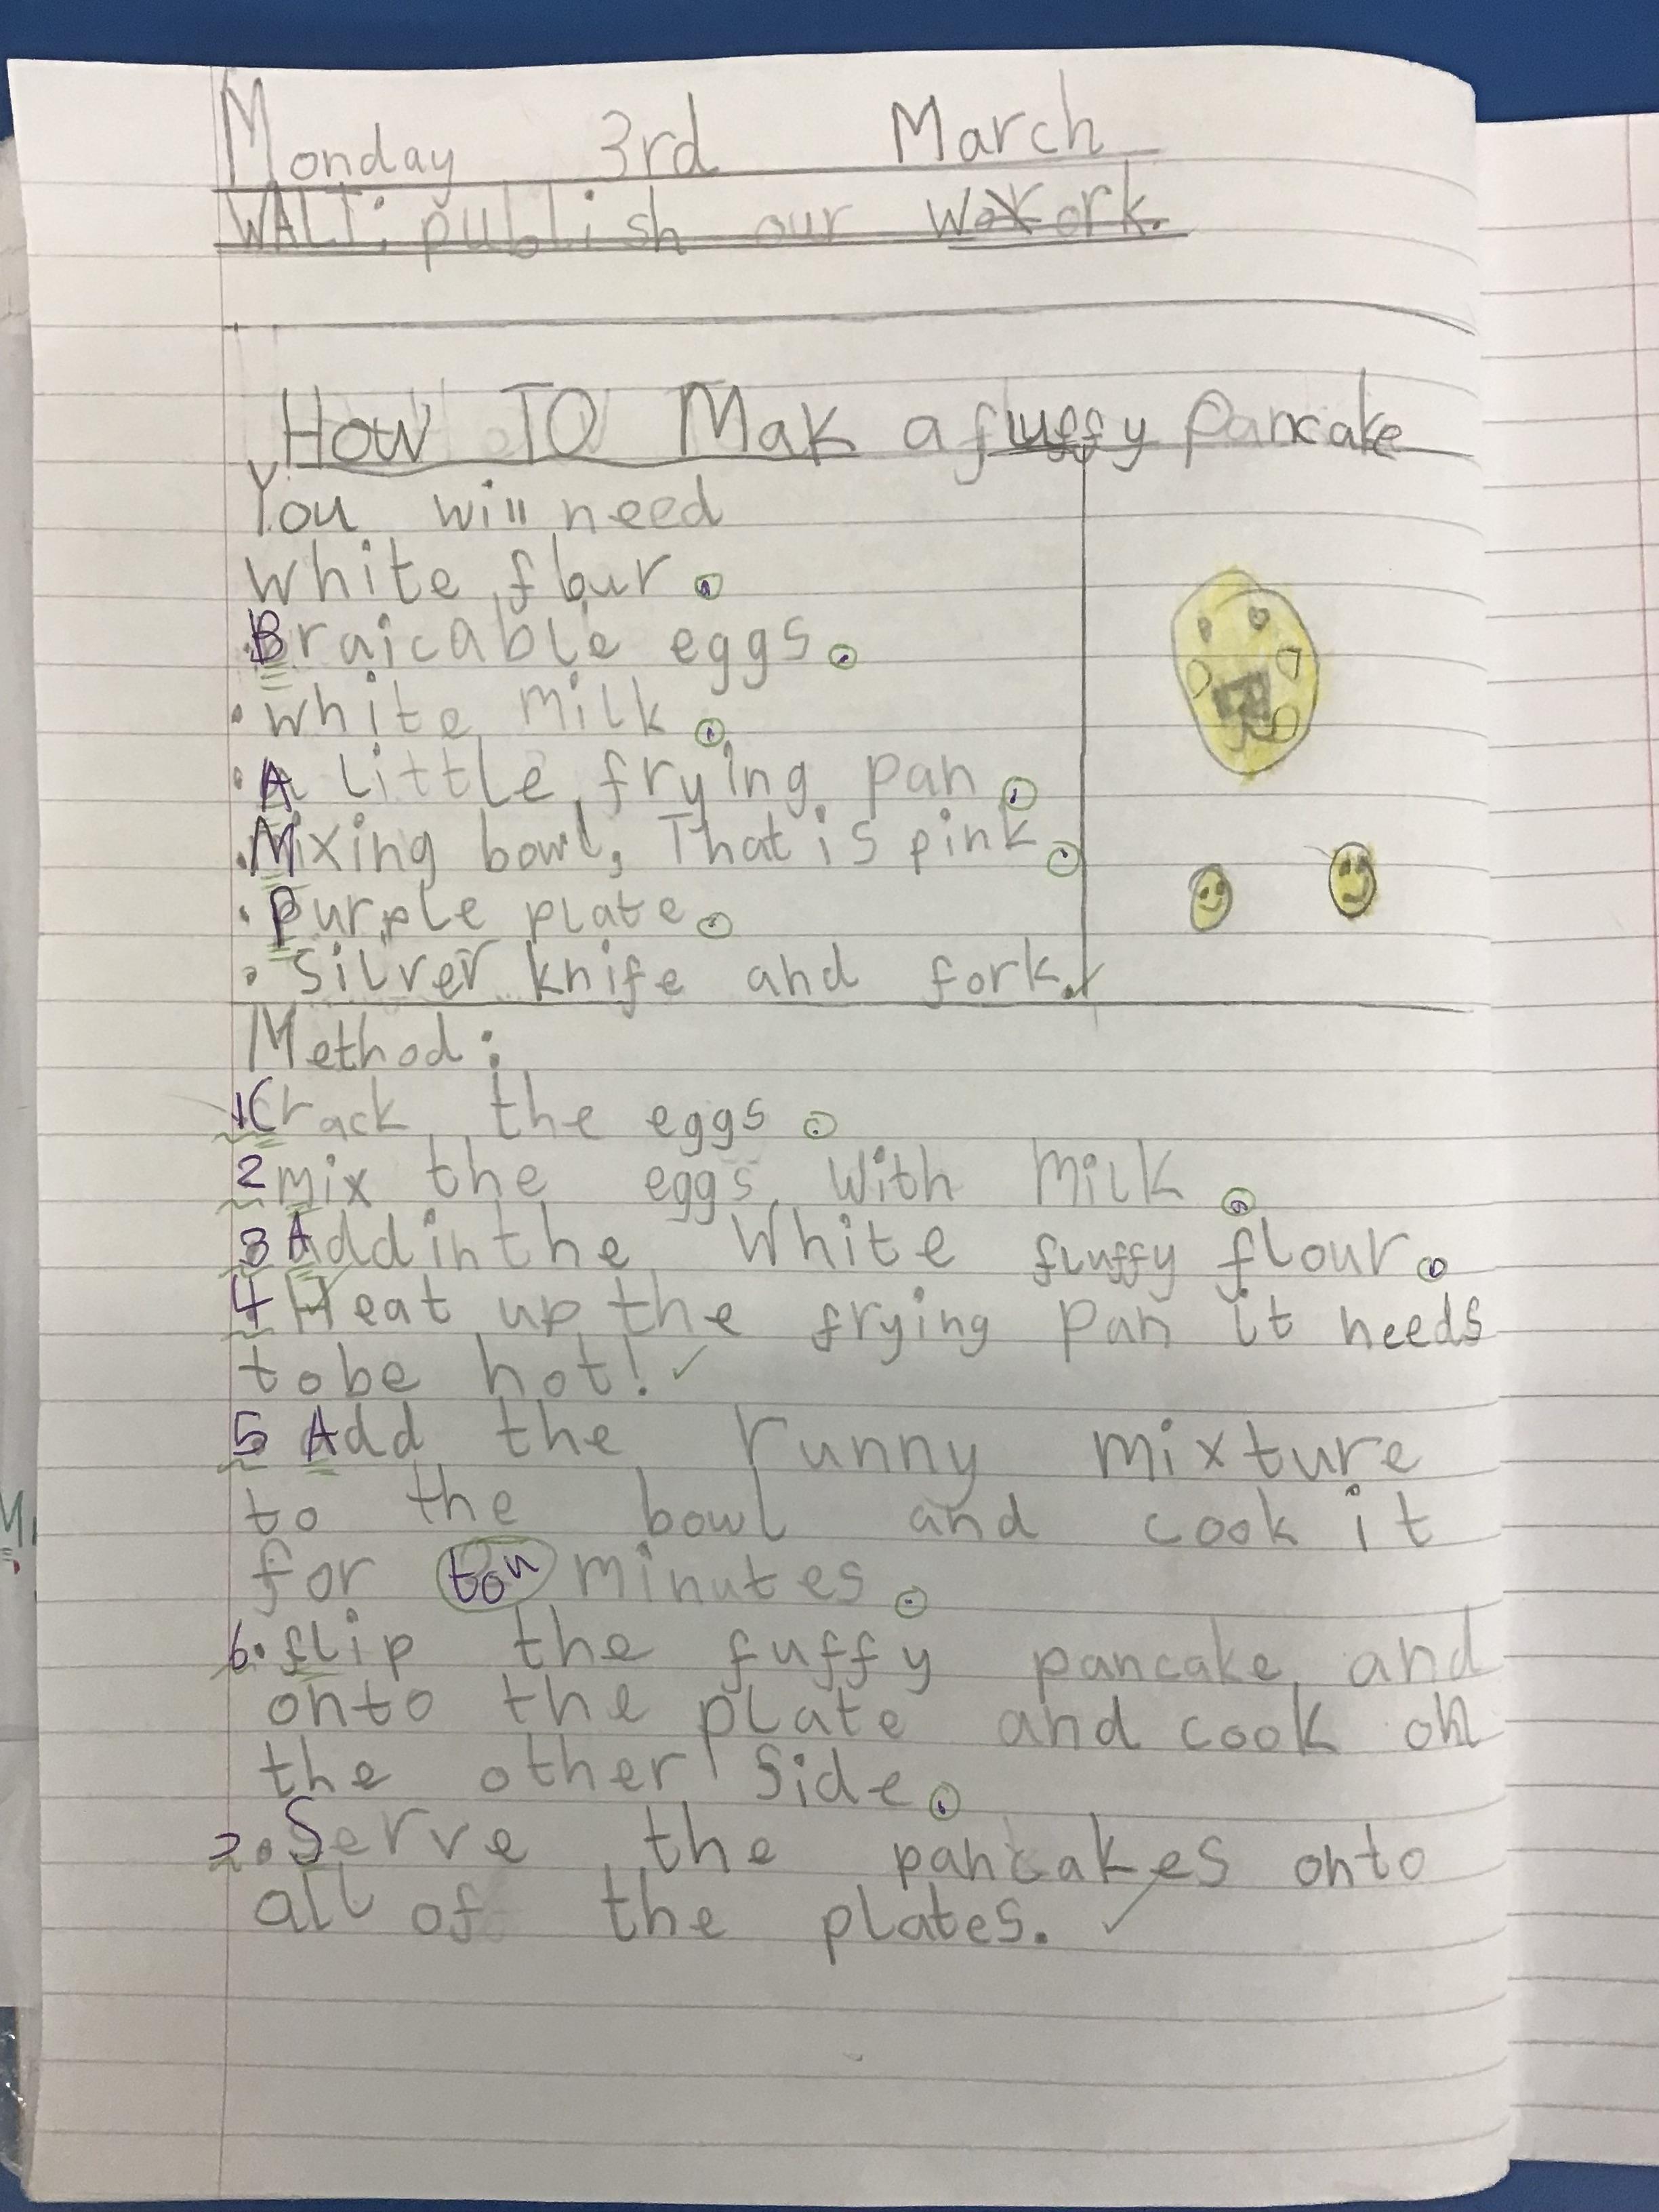 Monday 3rd March
WALT: publish our work.
How TO Mak a fluffy pancake
You will need
white flour.
Braicable eggs.
• white milk.
• A little frying pan.
• Mixing bowl, That is pink.
• Purple plate.
• Silver knife and fork.
Method:
1 Crack the eggs.
2 mix the eggs with Milk.
3 Add in the White fluffy flour.
4 Heat up the frying pan it needs
to be hot!
5 Add the runny mixture
to the bowl and cook it
for ton minutes.
6. flip the fuffy pancake and
onto the plate and cook on
the other side.
7. Serve the pancakes onto
all of the plates.